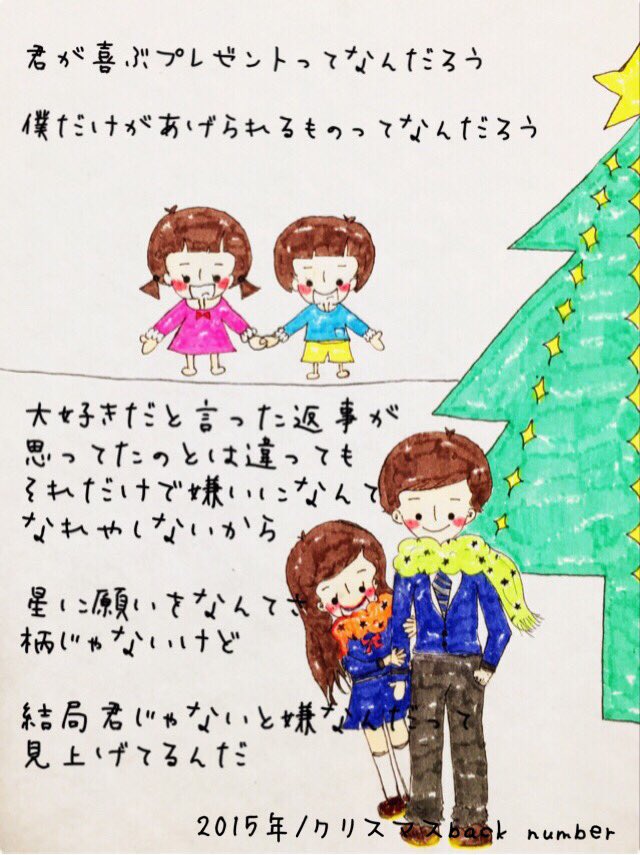 君が喜ぶプレゼントってなんだろう
僕だけがあげられるものってなんだろう
大好きだと言った返事が
思ってたのとは違っても
それだけで嫌いになんて
なれやしないから
星に願いをなんてさ
柄じゃないけど
結局君じゃないと嫌なんだって
見上げてるんだ
2015年/クリスマスback number